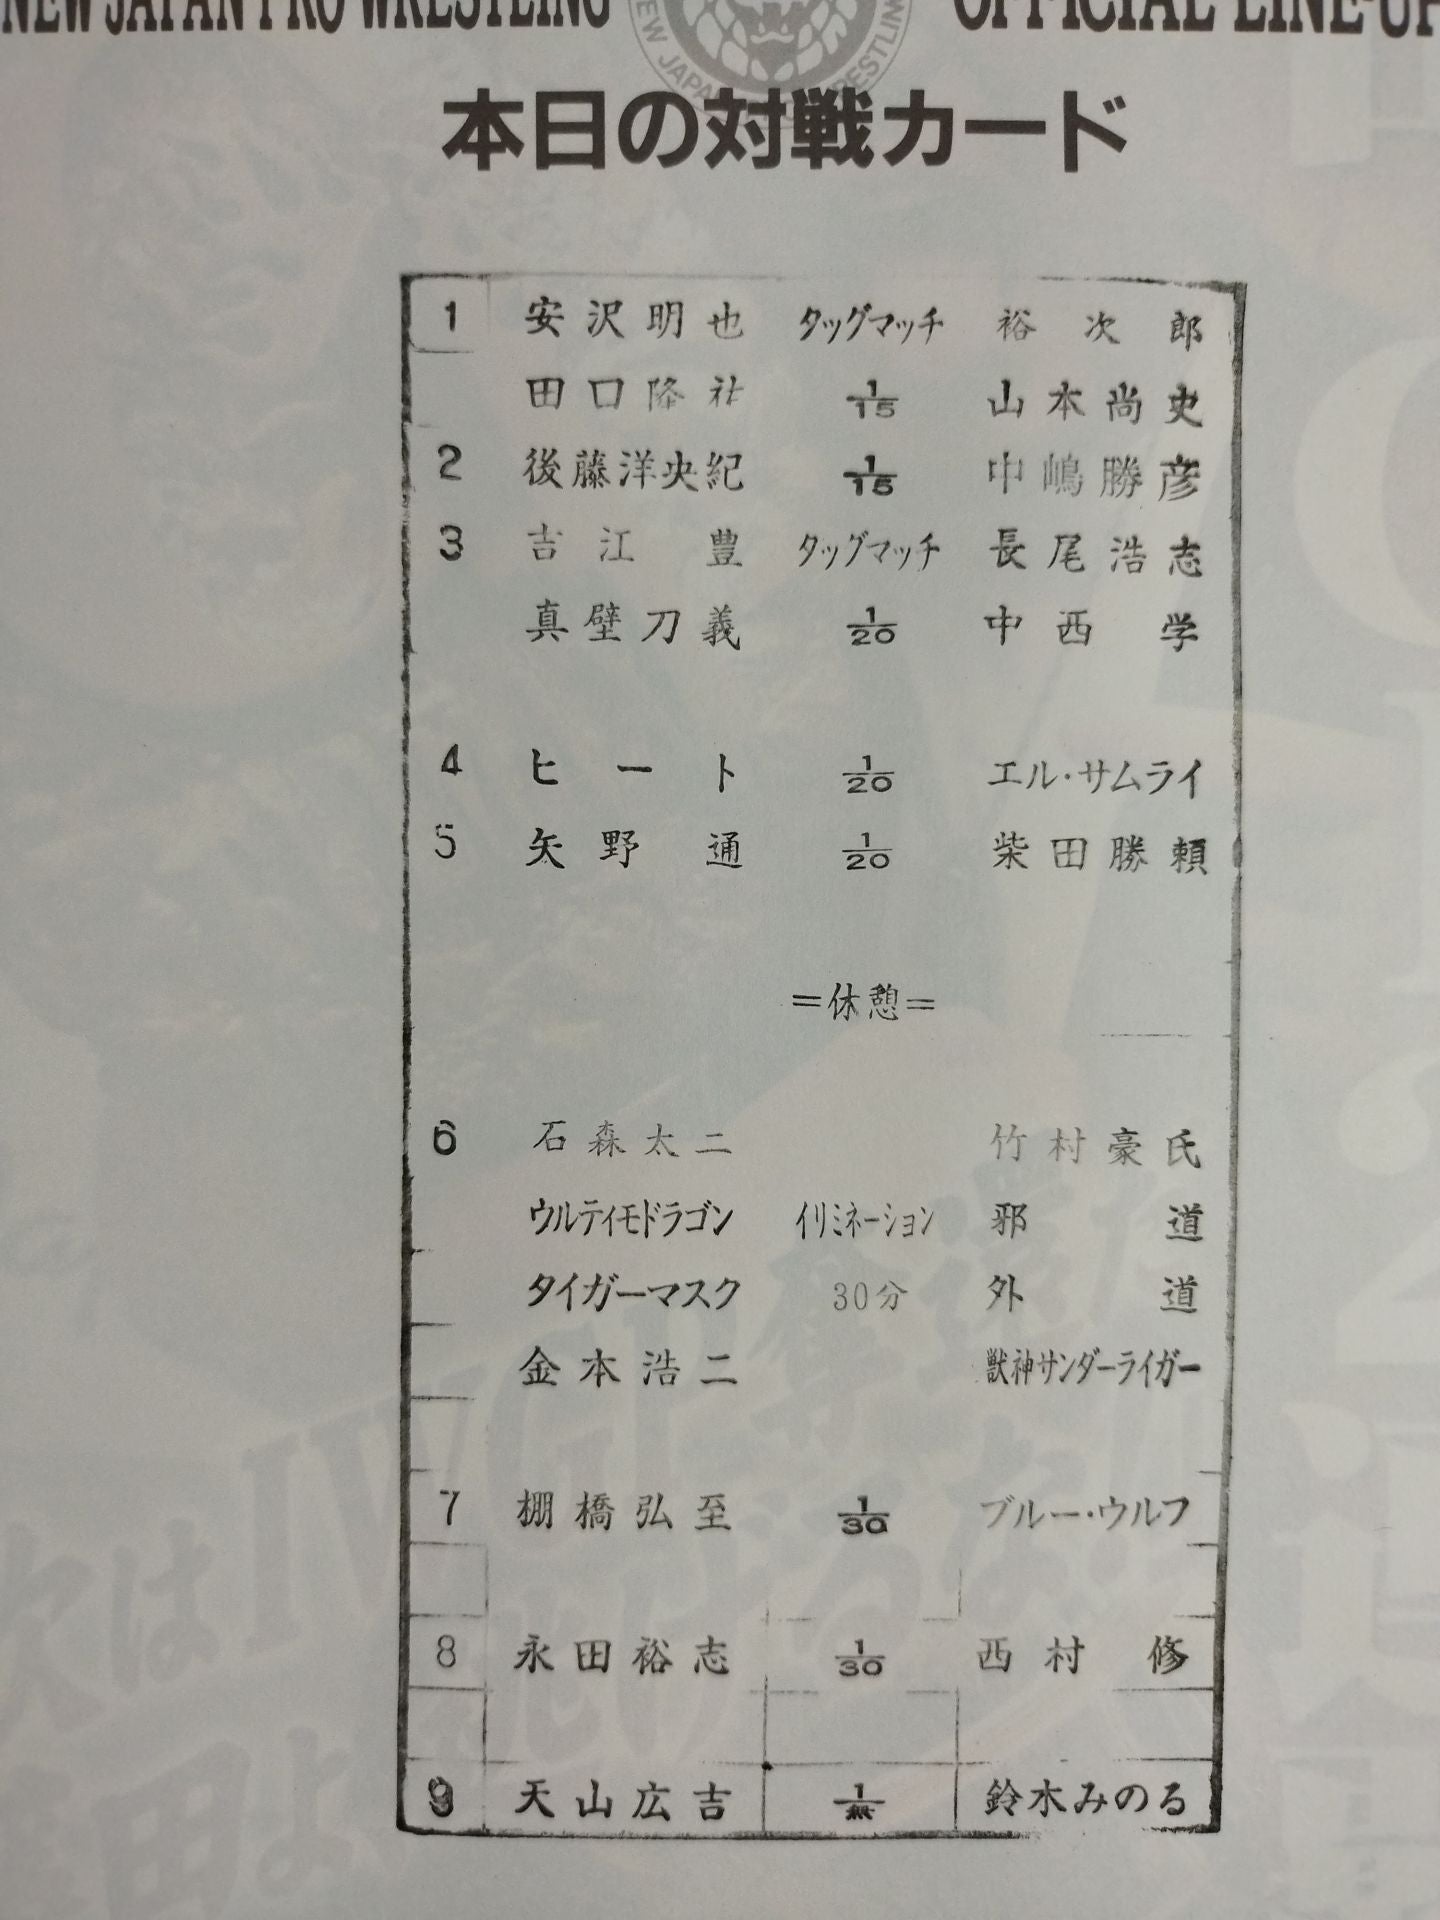 NEW JAPAN PRO WRESTLING OFFICIAL LINE-UP
NEW JAPAN PRO WRESTLING
本日の対戦カード
1 安沢明也 タッグマッチ 裕次郎
田口隆祐 1/15 山本尚史
2 後藤洋央紀 1/15 中嶋勝彦
3 吉江豊 タッグマッチ 長尾浩志
真壁刀義 1/20 中西学
4 ヒート 1/20 エル・サムライ
5 矢野通 1/20 柴田勝頼
=休憩=
6 石森太二 竹村豪氏
ウルティモドラゴン イリミネーション 邪道
タイガーマスク 30分 外道
金本浩二 獣神サンダーライガー
7 棚橋弘至 1/30 ブルー・ウルフ
8 永田裕志 1/30 西村修
9 天山広吉 1/無 鈴木みのる